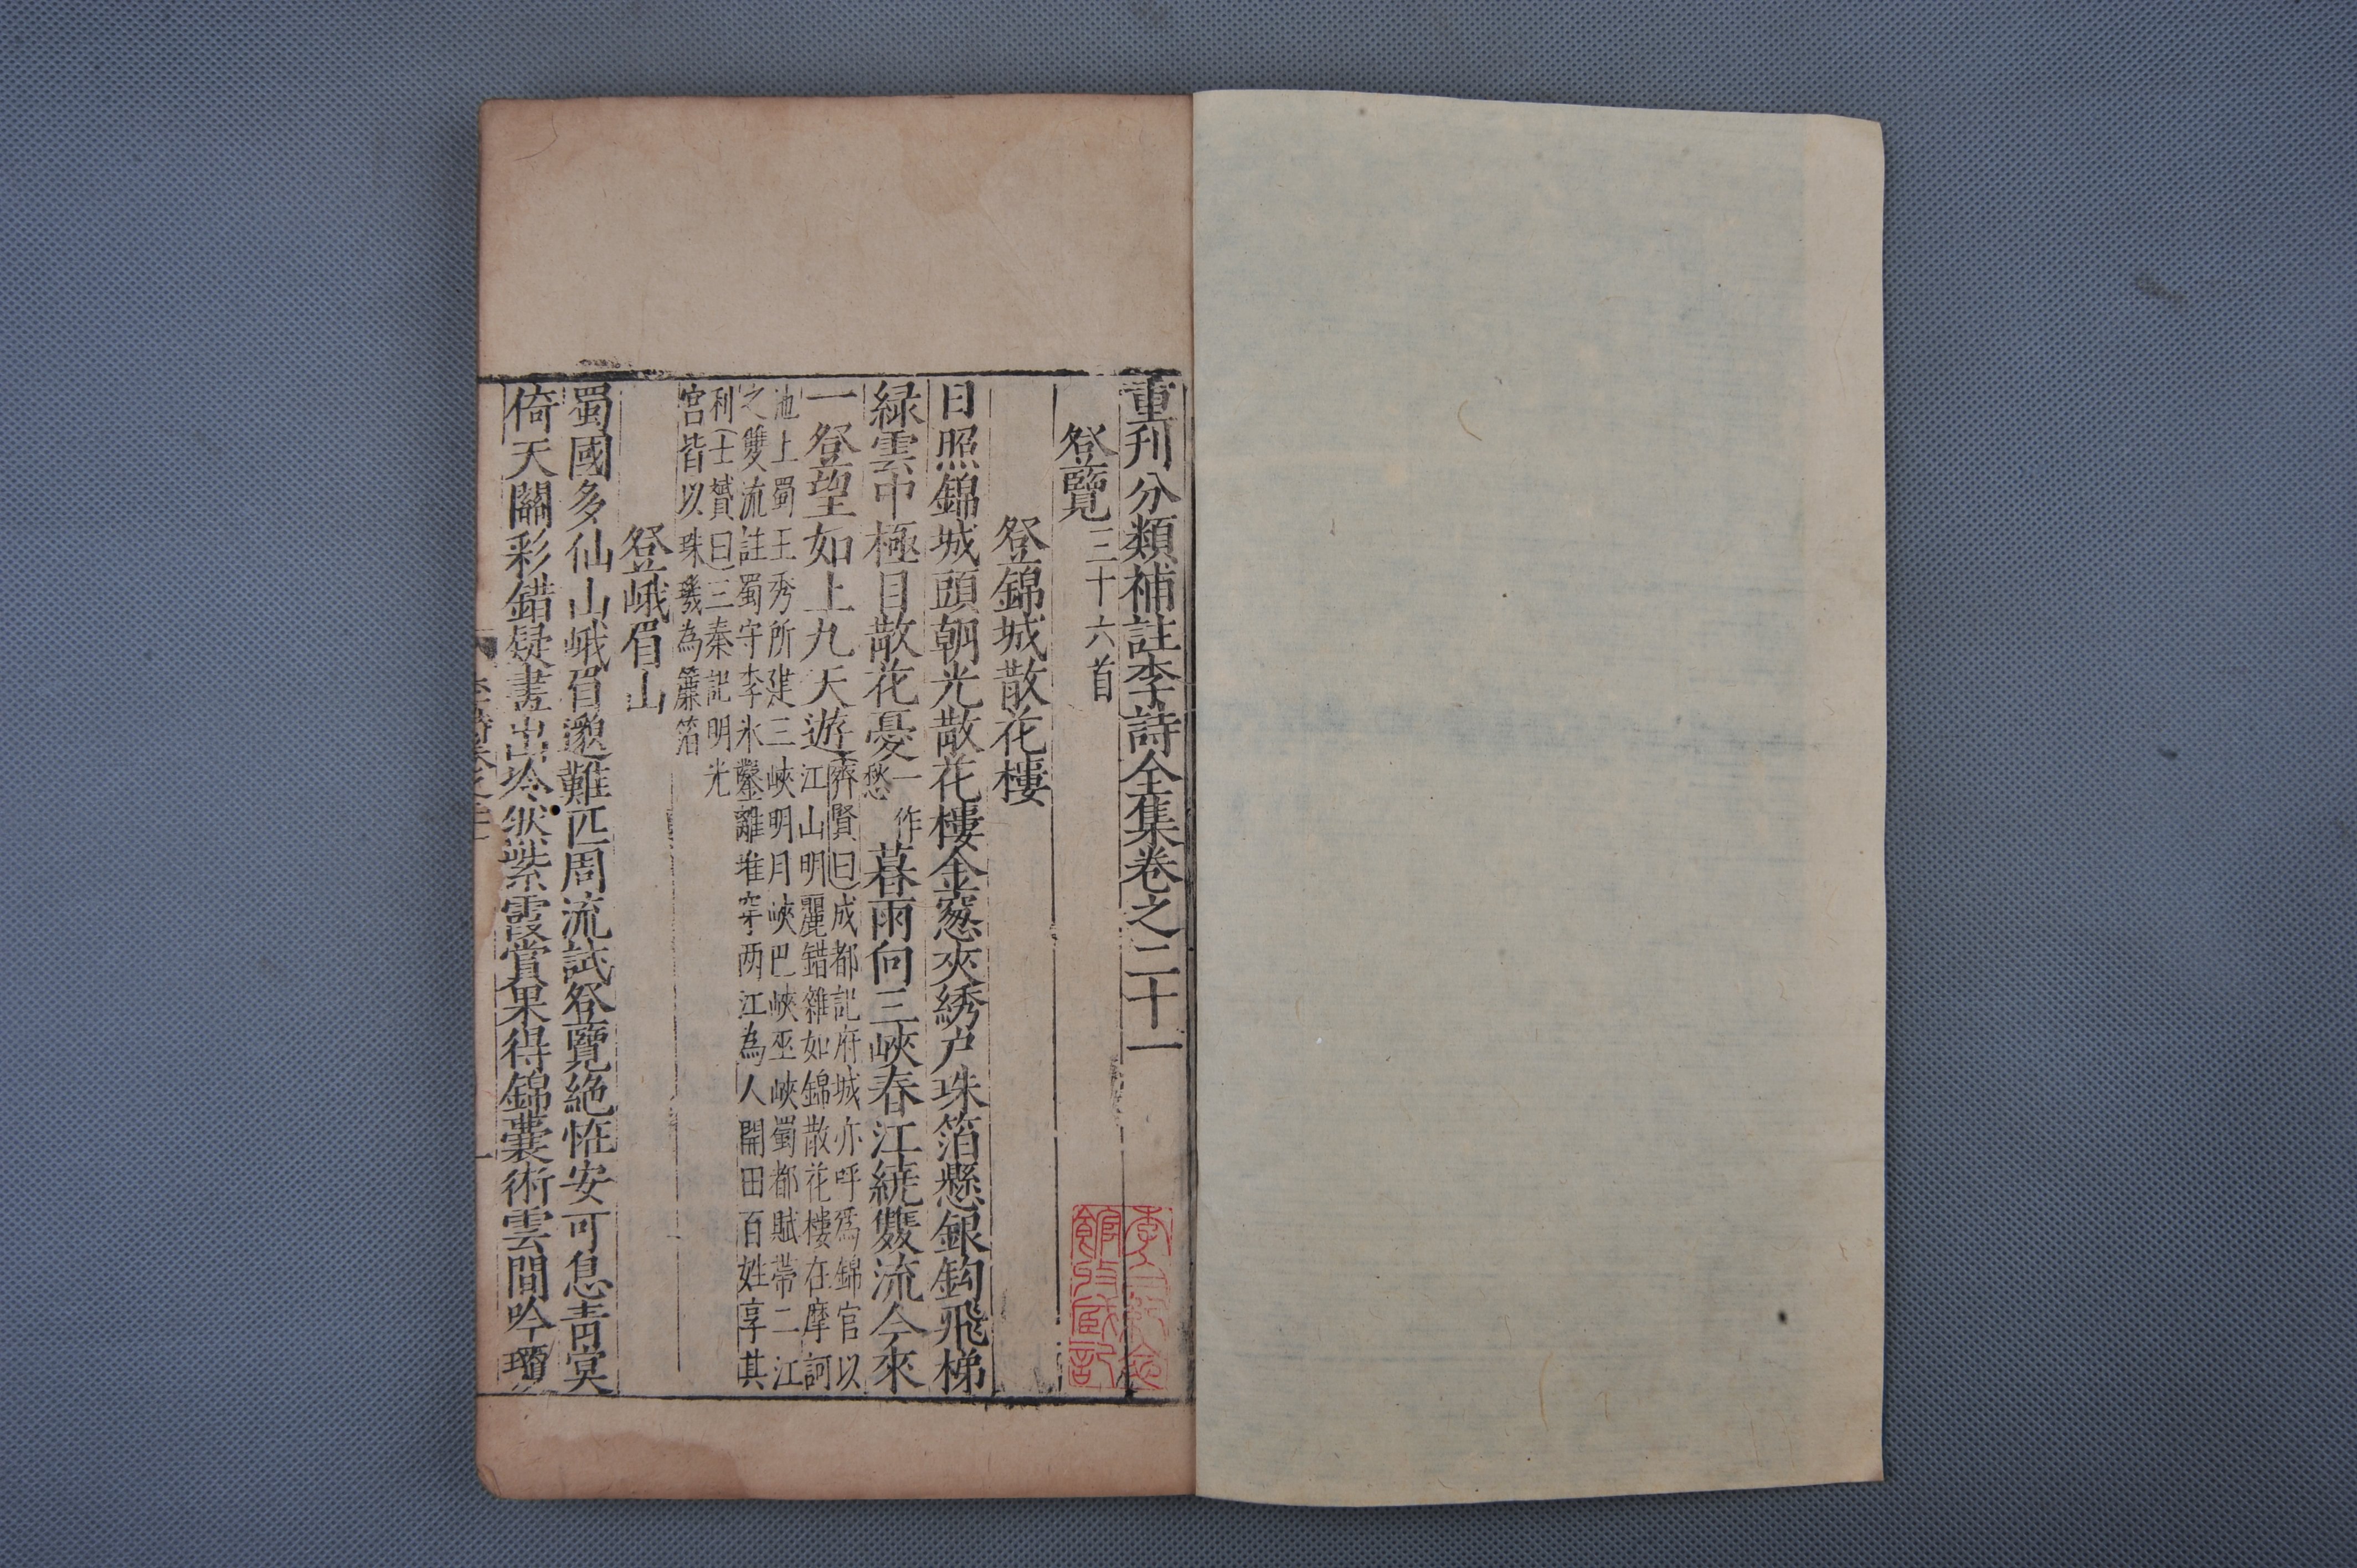 重刊分類補註李詩全集卷之二十一
登覽三十六首
登錦城散花樓
日照錦城頭朝光散花樓金窓夾綉户珠箔懸銀鈎飛梯
緑雲中極目散花憂一作愁暮雨向三峽春江繞雙流今來
一登望如上九天遊齊賢曰成都記府城亦呼爲錦官以
江山明麗錯雜如錦散花樓在摩訶
池上蜀王秀所建三峽明月峽巴峽巫峽蜀都賦帶二江
之雙流註蜀守李氷鑿離堆穿两江為人開田百姓享其
利士贇曰三秦記明光
宫皆以珠璣為簾箔
登峨眉山
蜀國多仙山峨眉邈難匹周流試登覽絶恠安可息青冥
倚天關彩錯疑畫出泠然紫霞賞果得錦囊術雲間吟瓊
李詩卷之二十一
一
李白紀念館收藏記